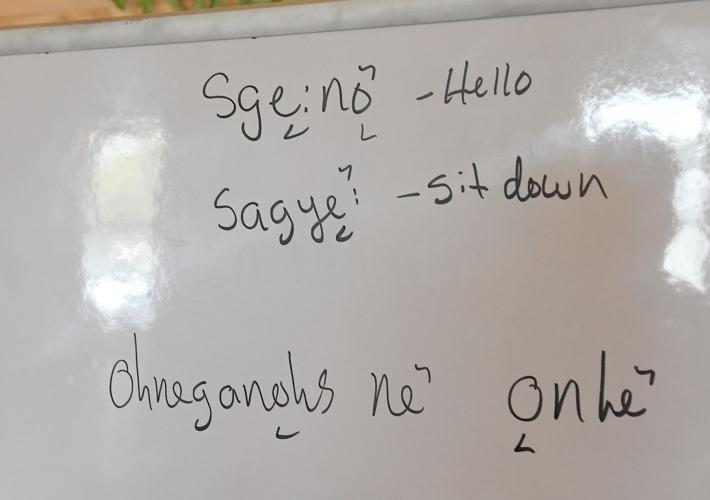 Sgę:nǫˀ - Hello
Sagyęˀ: - sit down
Ohneganǫhs neˀ ǫnheˀ